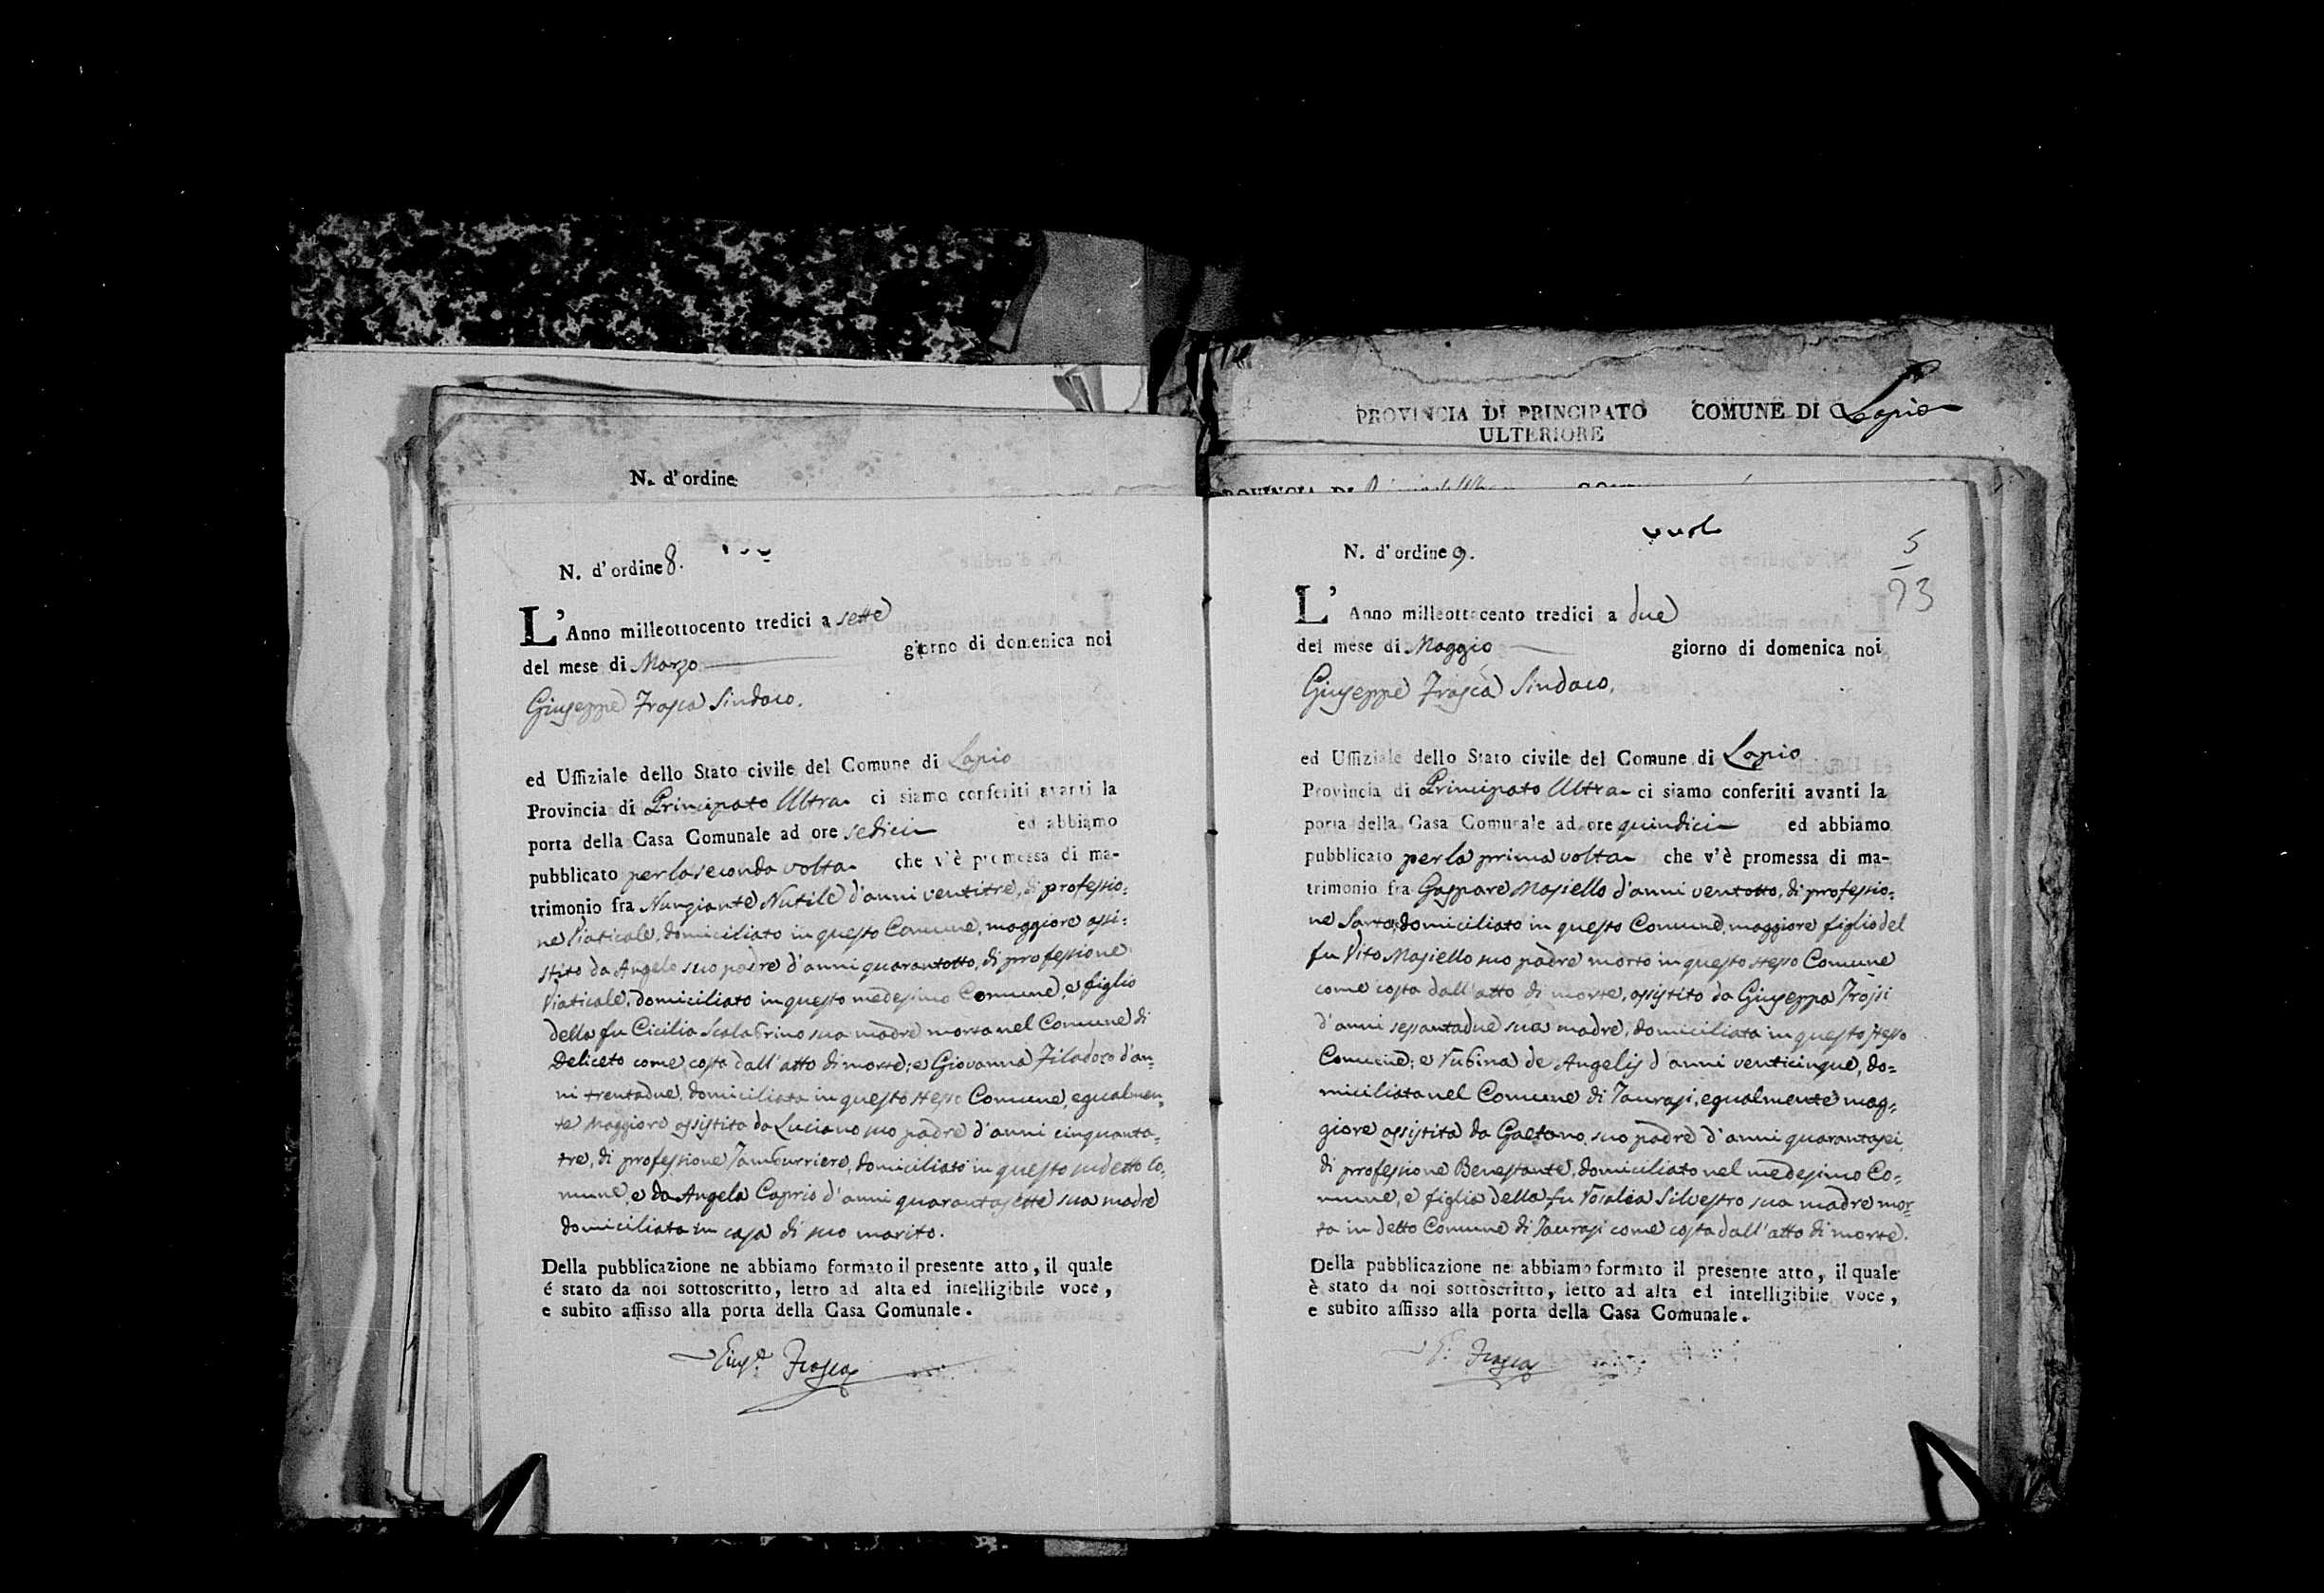 N. d'ordine
N. d'ordine 8.
L'Anno milleottocento tredici a sette
del mese di Marzo giorno di domenica noi
Giuseppe Frasca Sindaco.
ed Uffiziale dello Stato civile del Comune di Lapio
Provincia di Principato Ultra ci siamo conferiti avanti la
porta della Casa Comunale ad ore sedici ed abbiamo
pubblicato per la seconda volta che v'è promessa di ma-
trimonio fra Nunziante Nutile d'anni ventitre, di professio=
ne Viaticale, domiciliato in questo Comune, maggiore assi=
stito da Angelo suo padre d'anni quarantotto, di professione
Viaticale, domiciliato in questo medesimo Comune, e figlio
della fu Cicilia Scalabrino sua madre morta nel Comune di
Deliceto come costa dall'atto di morte; e Giovanna Filadoro d'an=
ni trentadue, domiciliata in questo stesso Comune, egualmen=
te Maggiore assistita da Luciano suo padre d'anni cinquanta=
tre, di professione Tamburriere, domiciliato in questo sudetto Co=
mune, e da Angela Caprio d'anni quarantasette sua madre
domiciliata in casa di suo marito.
Della pubblicazione ne abbiamo formato il presente atto, il quale
é stato da noi sottoscritto, letto ad alta ed intelligibile voce,
e subito affisso alla porta della Casa Comunale.
Frasca
PROVINCIA DI PRINCIPATO COMUNE DI Lapio
ULTERIORE
PROVINCIA DI
N. d'ordine 9.
5
93
L'Anno milleottocento tredici a due
del mese di Maggio giorno di domenica noi
Giuseppe Frasca Sindaco,
ed Uffiziale dello Stato civile del Comune di Lapio
Provincia di Principato Ultra ci siamo conferiti avanti la
porta della Casa Comunale ad ore quindici ed abbiamo
pubblicato per la prima volta che v'è promessa di ma-
trimonio fra Gaspare Masiello d'anni ventotto, di professio=
ne Sarto, domiciliato in questo Comune, maggiore figlio del
fu Vito Masiello suo padre morto in questo stesso Comune
come costa dall'atto di morte, assistito da Giuseppa Troisi
d'anni sessantadue sua madre, domiciliata in questo stesso
Comune; e Rubina de Angelis d'anni venticinque, do=
miciliata nel Comune di Taurasi, egualmente mag=
giore assistita da Gaetano suo padre d'anni quarantasei,
di professione Benestante, domiciliato nel medesimo Co=
mune, e figlia della fu Rosalia Silvestro sua madre mor=
ta in detto Comune di Taurasi come costa dall'atto di morte.
Della pubblicazione ne abbiamo formato il presente atto, il quale
è stato da noi sottoscritto, letto ad alta ed intelligibile voce,
e subito affisso alla porta della Casa Comunale.
G. Frasca